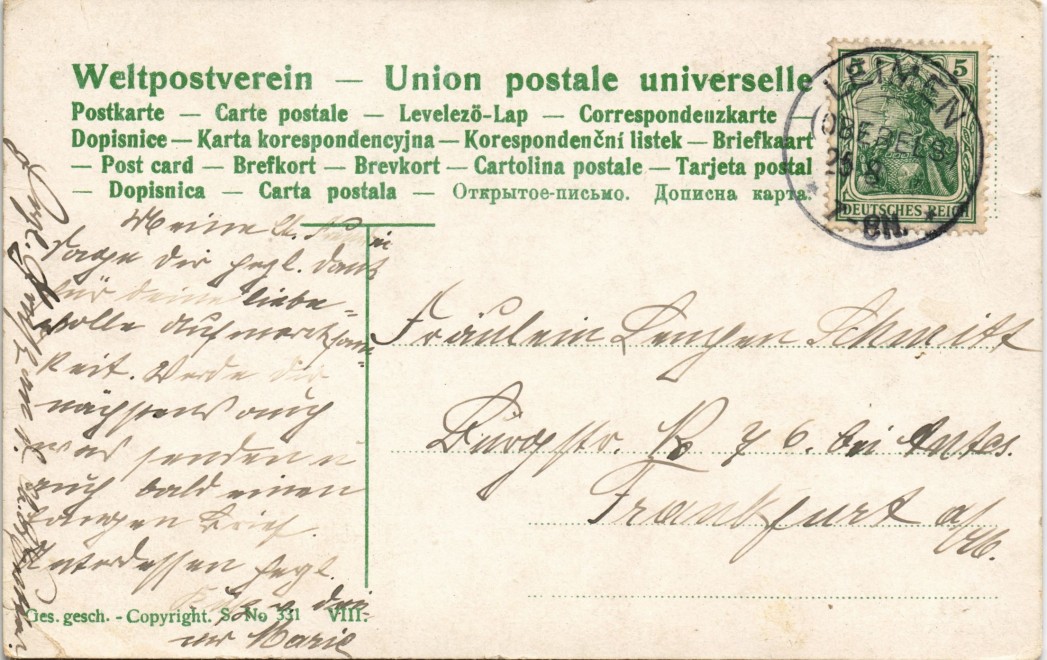 Weltpostverein — Union postale universelle
Postkarte — Carte postale — Levelező-Lap — Correspondenzkarte —
Dopisnice — Karta korespondencyjna — Korespondenční listek — Briefkaart
— Post card — Brefkort — Brevkort — Cartolina postale — Tarjeta postal
— Dopisnica — Carta postala — Открытое-письмо. Дописна карта.
5 5
DEUTSCHES REICH
LEIMEN
(OBERELS.)
7-8N.
Meine
Sage dir hzgl. Dank
für deine liebe-
volle Aufmerksam-
keit. Werde dir
nächstens auch
was senden u
auch bald einen
langen Brief.
Unterdessen hzgl.
Küsse dei
ner Marie
Fräulein Lenchen Schmitt
Burgstr. 76. bei
Frankfurt a/
M.
Ges. gesch. - Copyright. S. No 331 VIII.